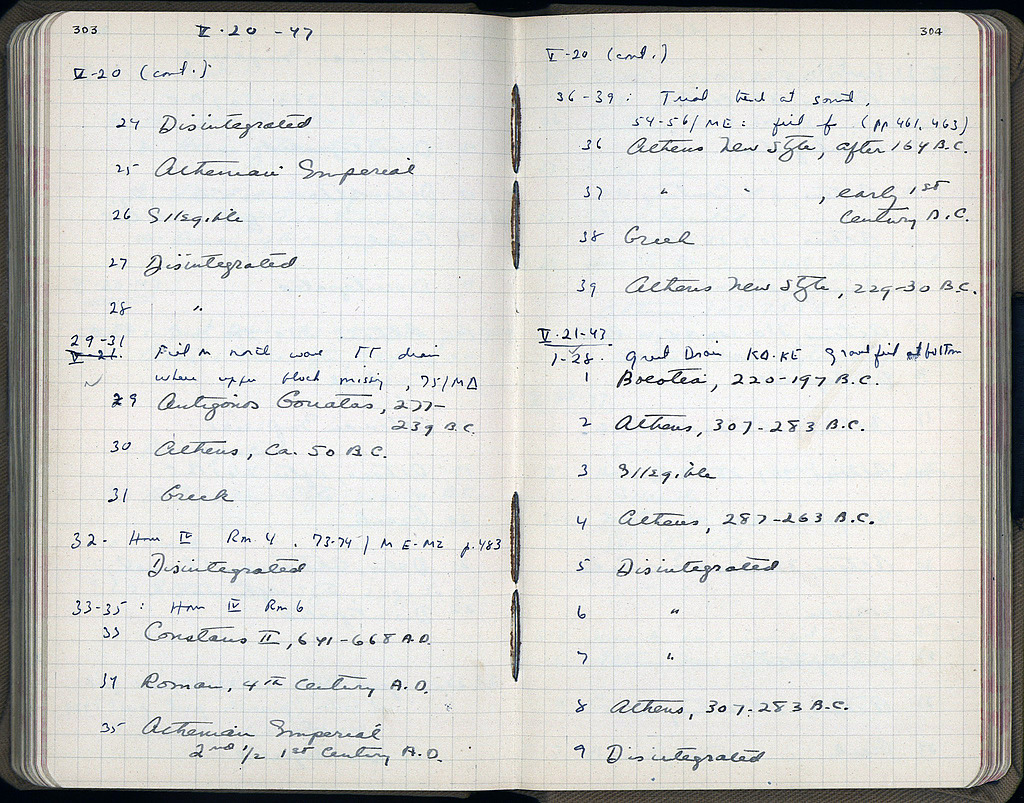 303
V·20 -47
V-20 (cont.)
24 Disintegrated
25 Athenian Imperial
26 Illegible
27 Disintegrated
28 "
29-31
V-21. Fill in north wave TT drain
where upper block missing, 75/ΜΔ
29 Antigonos Gonatas, 277-
239 B.C.
30 Athens, Ca. 50 B.C.
31 Greek
32. Hom IV Rm 4. 73-74/ΜΕ-ΜΖ p.483
Disintegrated
33-35: Hom IV Rm 6
33 Constans II, 641-668 A.D.
34 Roman, 4th Century A.D.
35 Athenian Imperial
2nd 1/2 1st Century A.D.
304
V-20 (cont.)
36-39: Trial at south,
54-56/ΜΕ: fill (pp 461, 463)
36 Athens New Style, after 164 B.C.
37 " " , early 1st
Century B.C.
38 Greek
39 Athens New Style, 229-30 B.C.
V·21-47
1-28. Great Drain ΚΔ-ΚΕ Gravel fill at bottom
1 Boeotia, 220-197 B.C.
2 Athens, 307-283 B.C.
3 Illegible
4 Athens, 287-263 B.C.
5 Disintegrated
6 "
7 "
8 Athens, 307-283 B.C.
9 Disintegrated